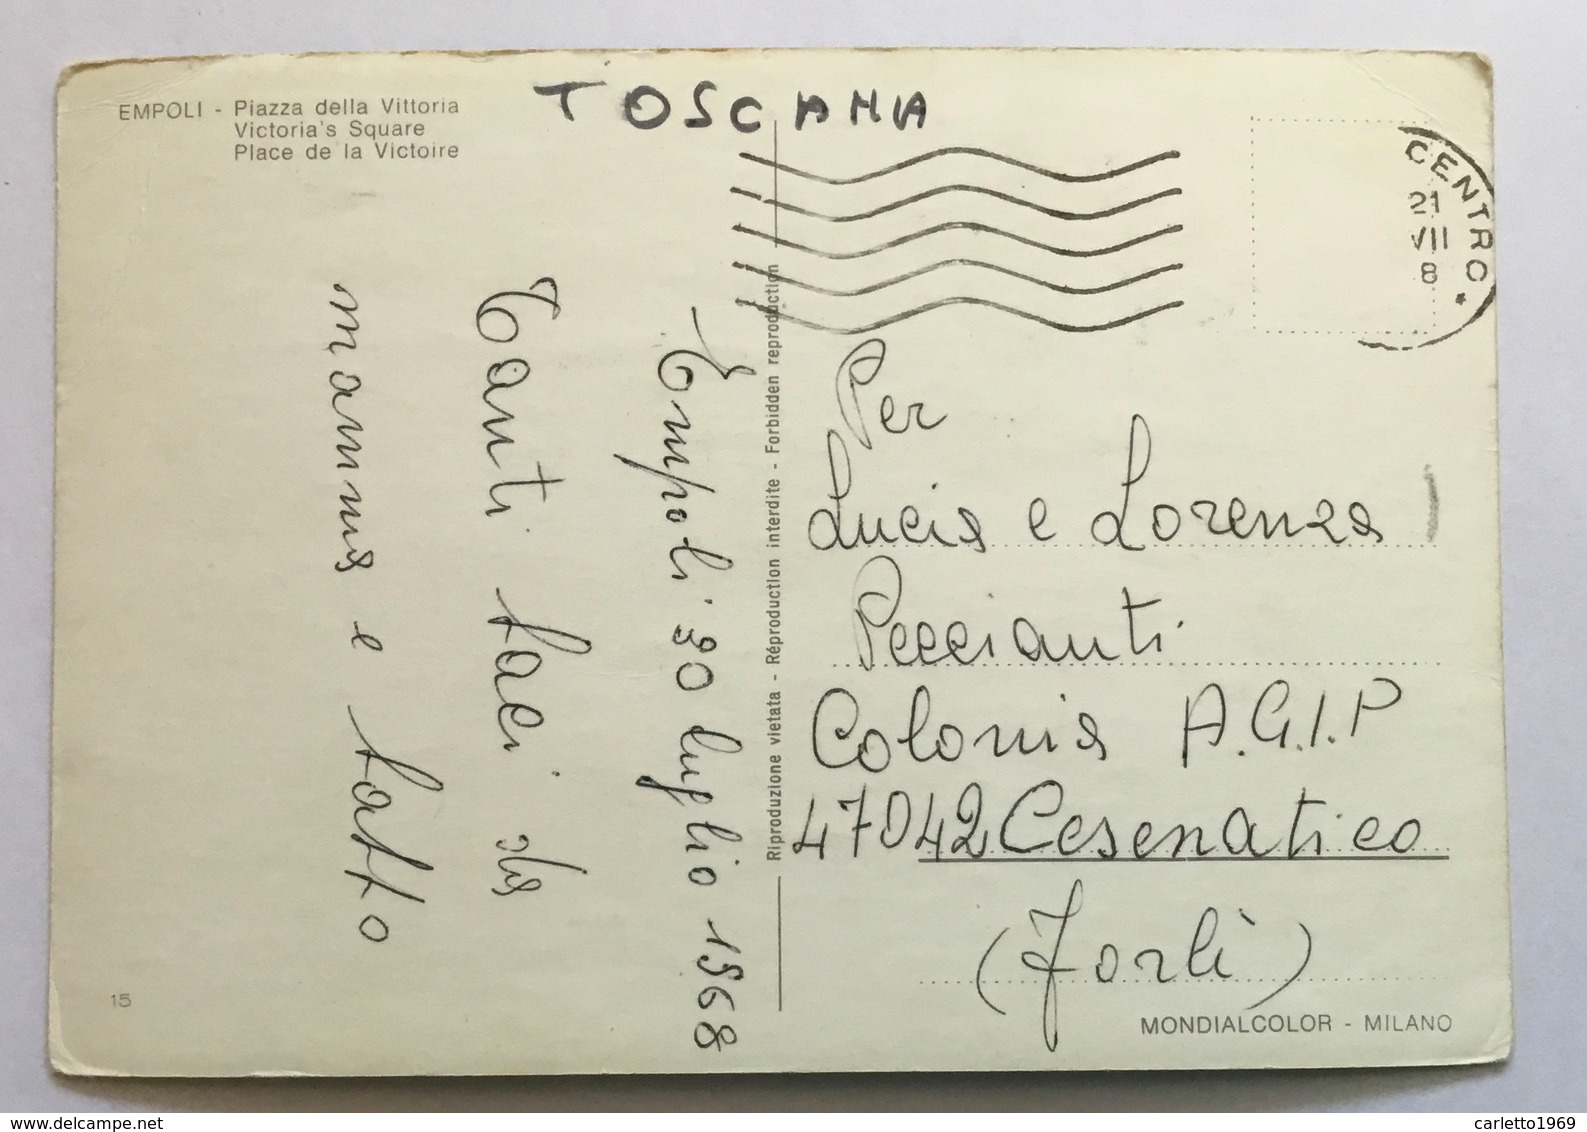 EMPOLI - Piazza della Vittoria
Victoria's Square
Place de la Victoire
TOSCANA
CENTRO
21
VII
8
Empoli 20 luglio 1968
Tanti baci da
mamma e babbo
Riproduzione vietata - Réproduction interdite - Forbidden reproduction
Per
Lucia e Lorenza
Peccianti
Colonia A.G.I.P
47042 Cesenatico
(Forlì)
15
MONDIALCOLOR - MILANO
delcampe.net
carletto1969